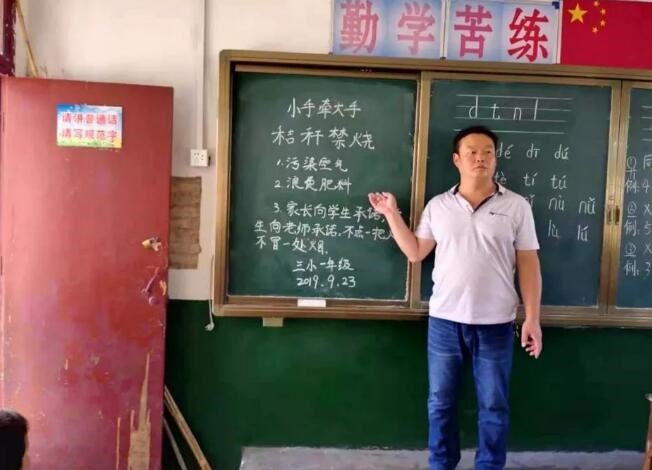 勤学苦练
请讲普通话
请写规范字
小手牵大手
桔秆禁烧
1.污染空气
2.浪费肥料
3.家长向学生承诺,
生向老师承诺,不点一把
不冒一处烟.
三小一年级
2019.9.23
d t n l
dé dī dú
tí tú
nù nǚ
lú
① 同
例:4
② X
例:5
③ X
例:3